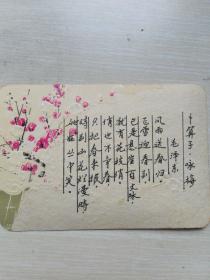 卜算子·咏梅
毛泽东
风雨送春归，
飞雪迎春到
已是悬崖百丈冰，
犹有花枝俏。
俏也不争春
只把春来报
待到山花烂漫時
她在丛中笑